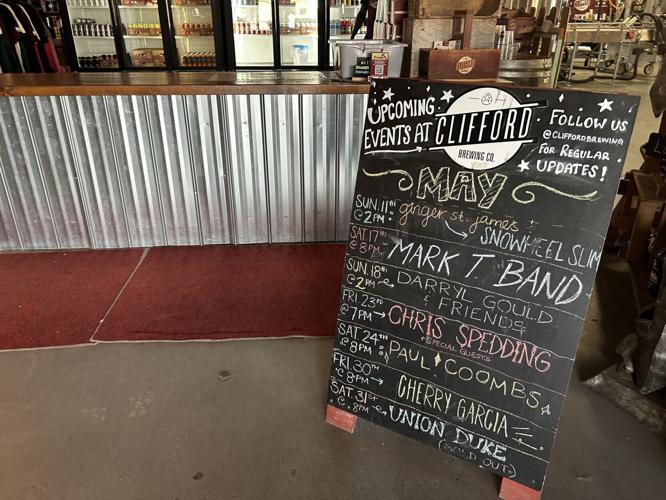 UPCOMING
EVENTS AT
CLIFFORD
BREWING CO.
FOLLOW US
@CLIFFORDBREWING
FOR REGULAR
UPDATES!
MAY
SUN. 11TH @ 2PM: ginger st. james +
SNOWHEEL SLIM
SAT 17TH @ 8PM → MARK T BAND
SUN. 18TH @ 2PM DARRYL GOULD
& FRIENDS
FRI 23RD @ 7PM → CHRIS SPEDDING
+ SPECIAL GUESTS
SAT 24TH @ 8PM: PAUL COOMBS
FRI. 30TH @ 8PM → CHERRY GARCIA
SAT. 31ST @ 8PM UNION DUKE
(SOLD OUT)